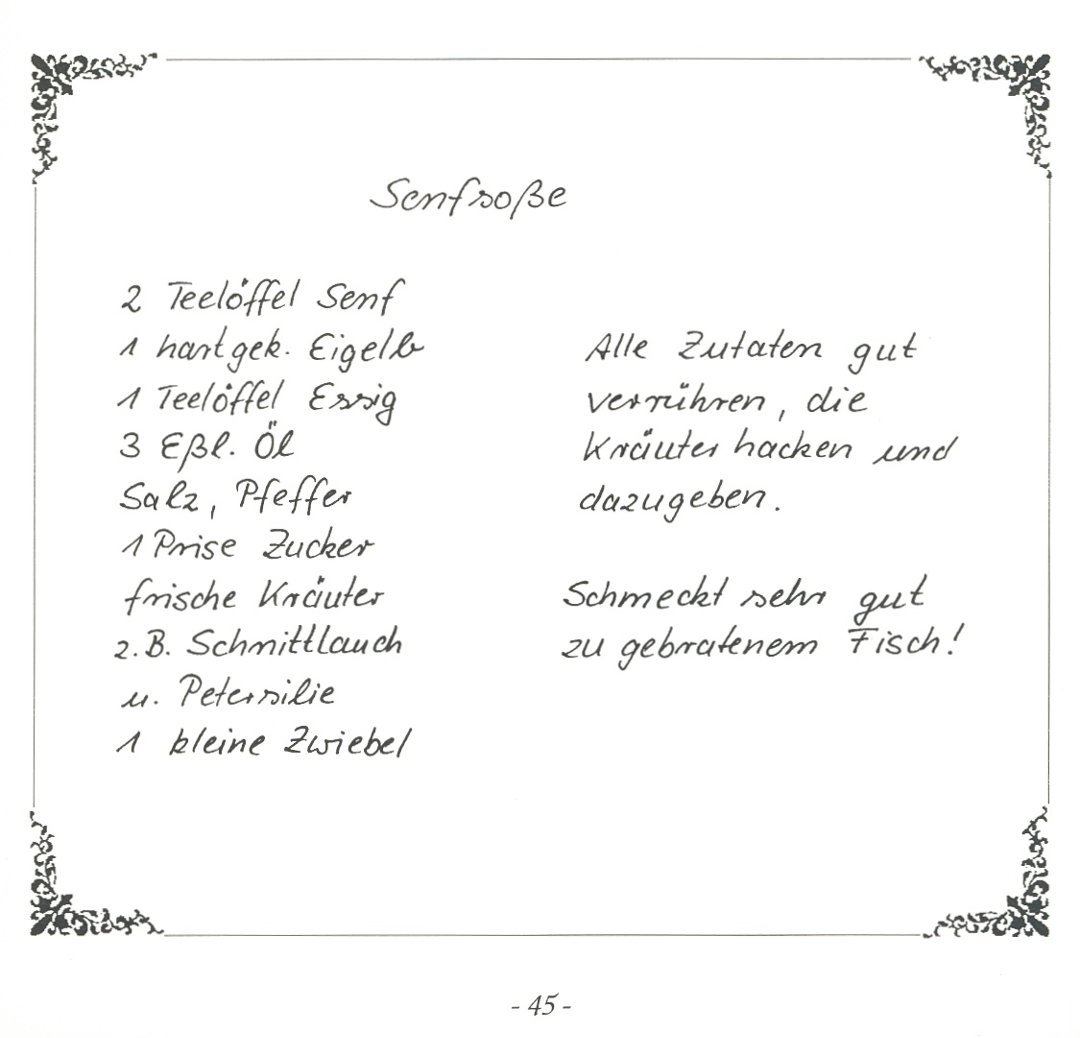 Senfsoße
2 Teelöffel Senf
1 hartgek. Eigelb
1 Teelöffel Essig
3 Eßl. Öl
Salz, Pfeffer
1 Prise Zucker
frische Kräuter
z.B. Schnittlauch
u. Petersilie
1 kleine Zwiebel
Alle Zutaten gut
verrühren, die
Kräuter hacken und
dazugeben.
Schmeckt sehr gut
zu gebratenem Fisch!
- 45 -